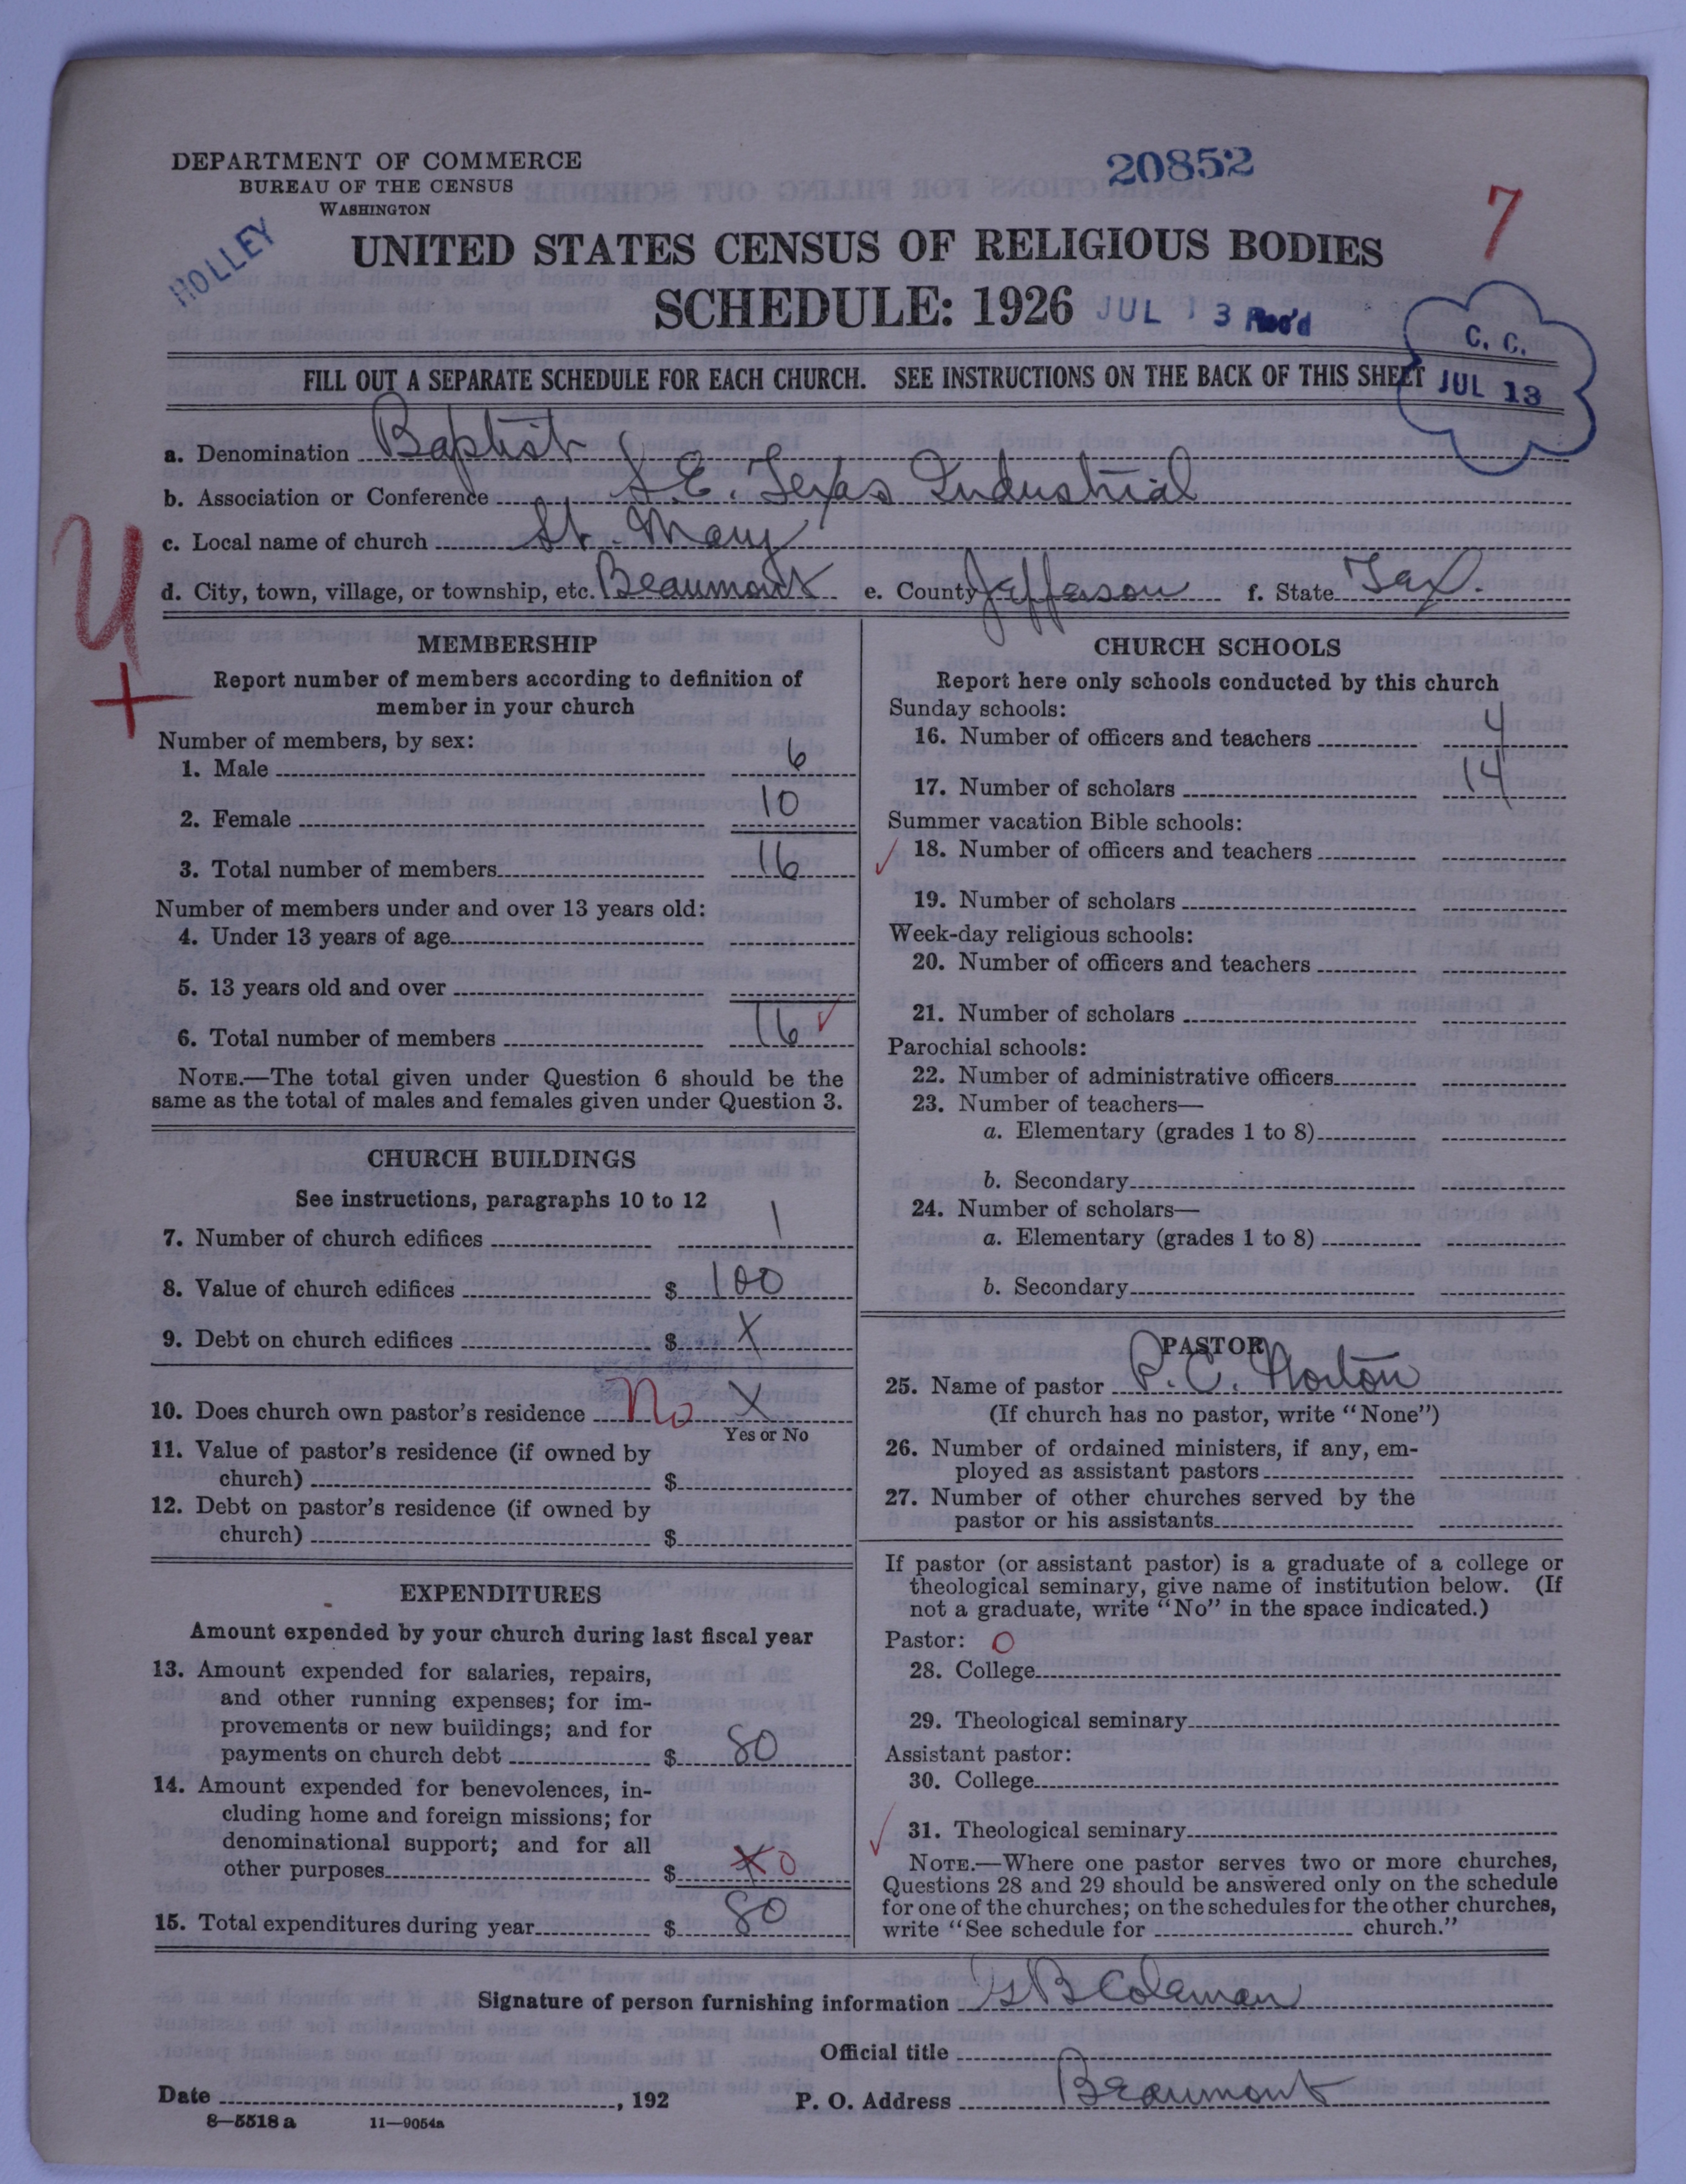 DEPARTMENT OF COMMERCE
BUREAU OF THE CENSUS
WASHINGTON
20852
7
HOLLEY
UNITED STATES CENSUS OF RELIGIOUS BODIES
SCHEDULE: 1926
JUL 13 Rec'd
C. C.
JUL 13
FILL OUT A SEPARATE SCHEDULE FOR EACH CHURCH. SEE INSTRUCTIONS ON THE BACK OF THIS SHEET
a. Denomination Baptist
b. Association or Conference S.E. Texas Industrial
c. Local name of church St. Mary
d. City, town, village, or township, etc. Beaumont e. County Jefferson f. State Tex.
MEMBERSHIP
Report number of members according to definition of
member in your church
Number of members, by sex:
1. Male 6
2. Female 10
3. Total number of members 16
Number of members under and over 13 years old:
4. Under 13 years of age
5. 13 years old and over
6. Total number of members 16 ✓
NOTE.—The total given under Question 6 should be the
same as the total of males and females given under Question 3.
CHURCH BUILDINGS
See instructions, paragraphs 10 to 12
7. Number of church edifices 1
8. Value of church edifices $ 100
9. Debt on church edifices $ X
10. Does church own pastor's residence No X
Yes or No
11. Value of pastor's residence (if owned by
church) $
12. Debt on pastor's residence (if owned by
church) $
EXPENDITURES
Amount expended by your church during last fiscal year
13. Amount expended for salaries, repairs,
and other running expenses; for im-
provements or new buildings; and for
payments on church debt $ 80
14. Amount expended for benevolences, in-
cluding home and foreign missions; for
denominational support; and for all
other purposes $ X 0
15. Total expenditures during year $ 80
CHURCH SCHOOLS
Report here only schools conducted by this church
Sunday schools:
16. Number of officers and teachers 4
17. Number of scholars 14
Summer vacation Bible schools:
✓ 18. Number of officers and teachers
19. Number of scholars
Week-day religious schools:
20. Number of officers and teachers
21. Number of scholars
Parochial schools:
22. Number of administrative officers
23. Number of teachers—
a. Elementary (grades 1 to 8)
b. Secondary
24. Number of scholars—
a. Elementary (grades 1 to 8)
b. Secondary
PASTOR
25. Name of pastor P. C. Norton
(If church has no pastor, write "None")
26. Number of ordained ministers, if any, em-
ployed as assistant pastors
27. Number of other churches served by the
pastor or his assistants
If pastor (or assistant pastor) is a graduate of a college or
theological seminary, give name of institution below. (If
not a graduate, write "No" in the space indicated.)
Pastor: 0
28. College
29. Theological seminary
Assistant pastor:
30. College
✓ 31. Theological seminary
NOTE.—Where one pastor serves two or more churches,
Questions 28 and 29 should be answered only on the schedule
for one of the churches; on the schedules for the other churches,
write "See schedule for church."
Signature of person furnishing information B Coleman
Official title
Date , 192 P. O. Address Beaumont
8—5518 a 11—9054a